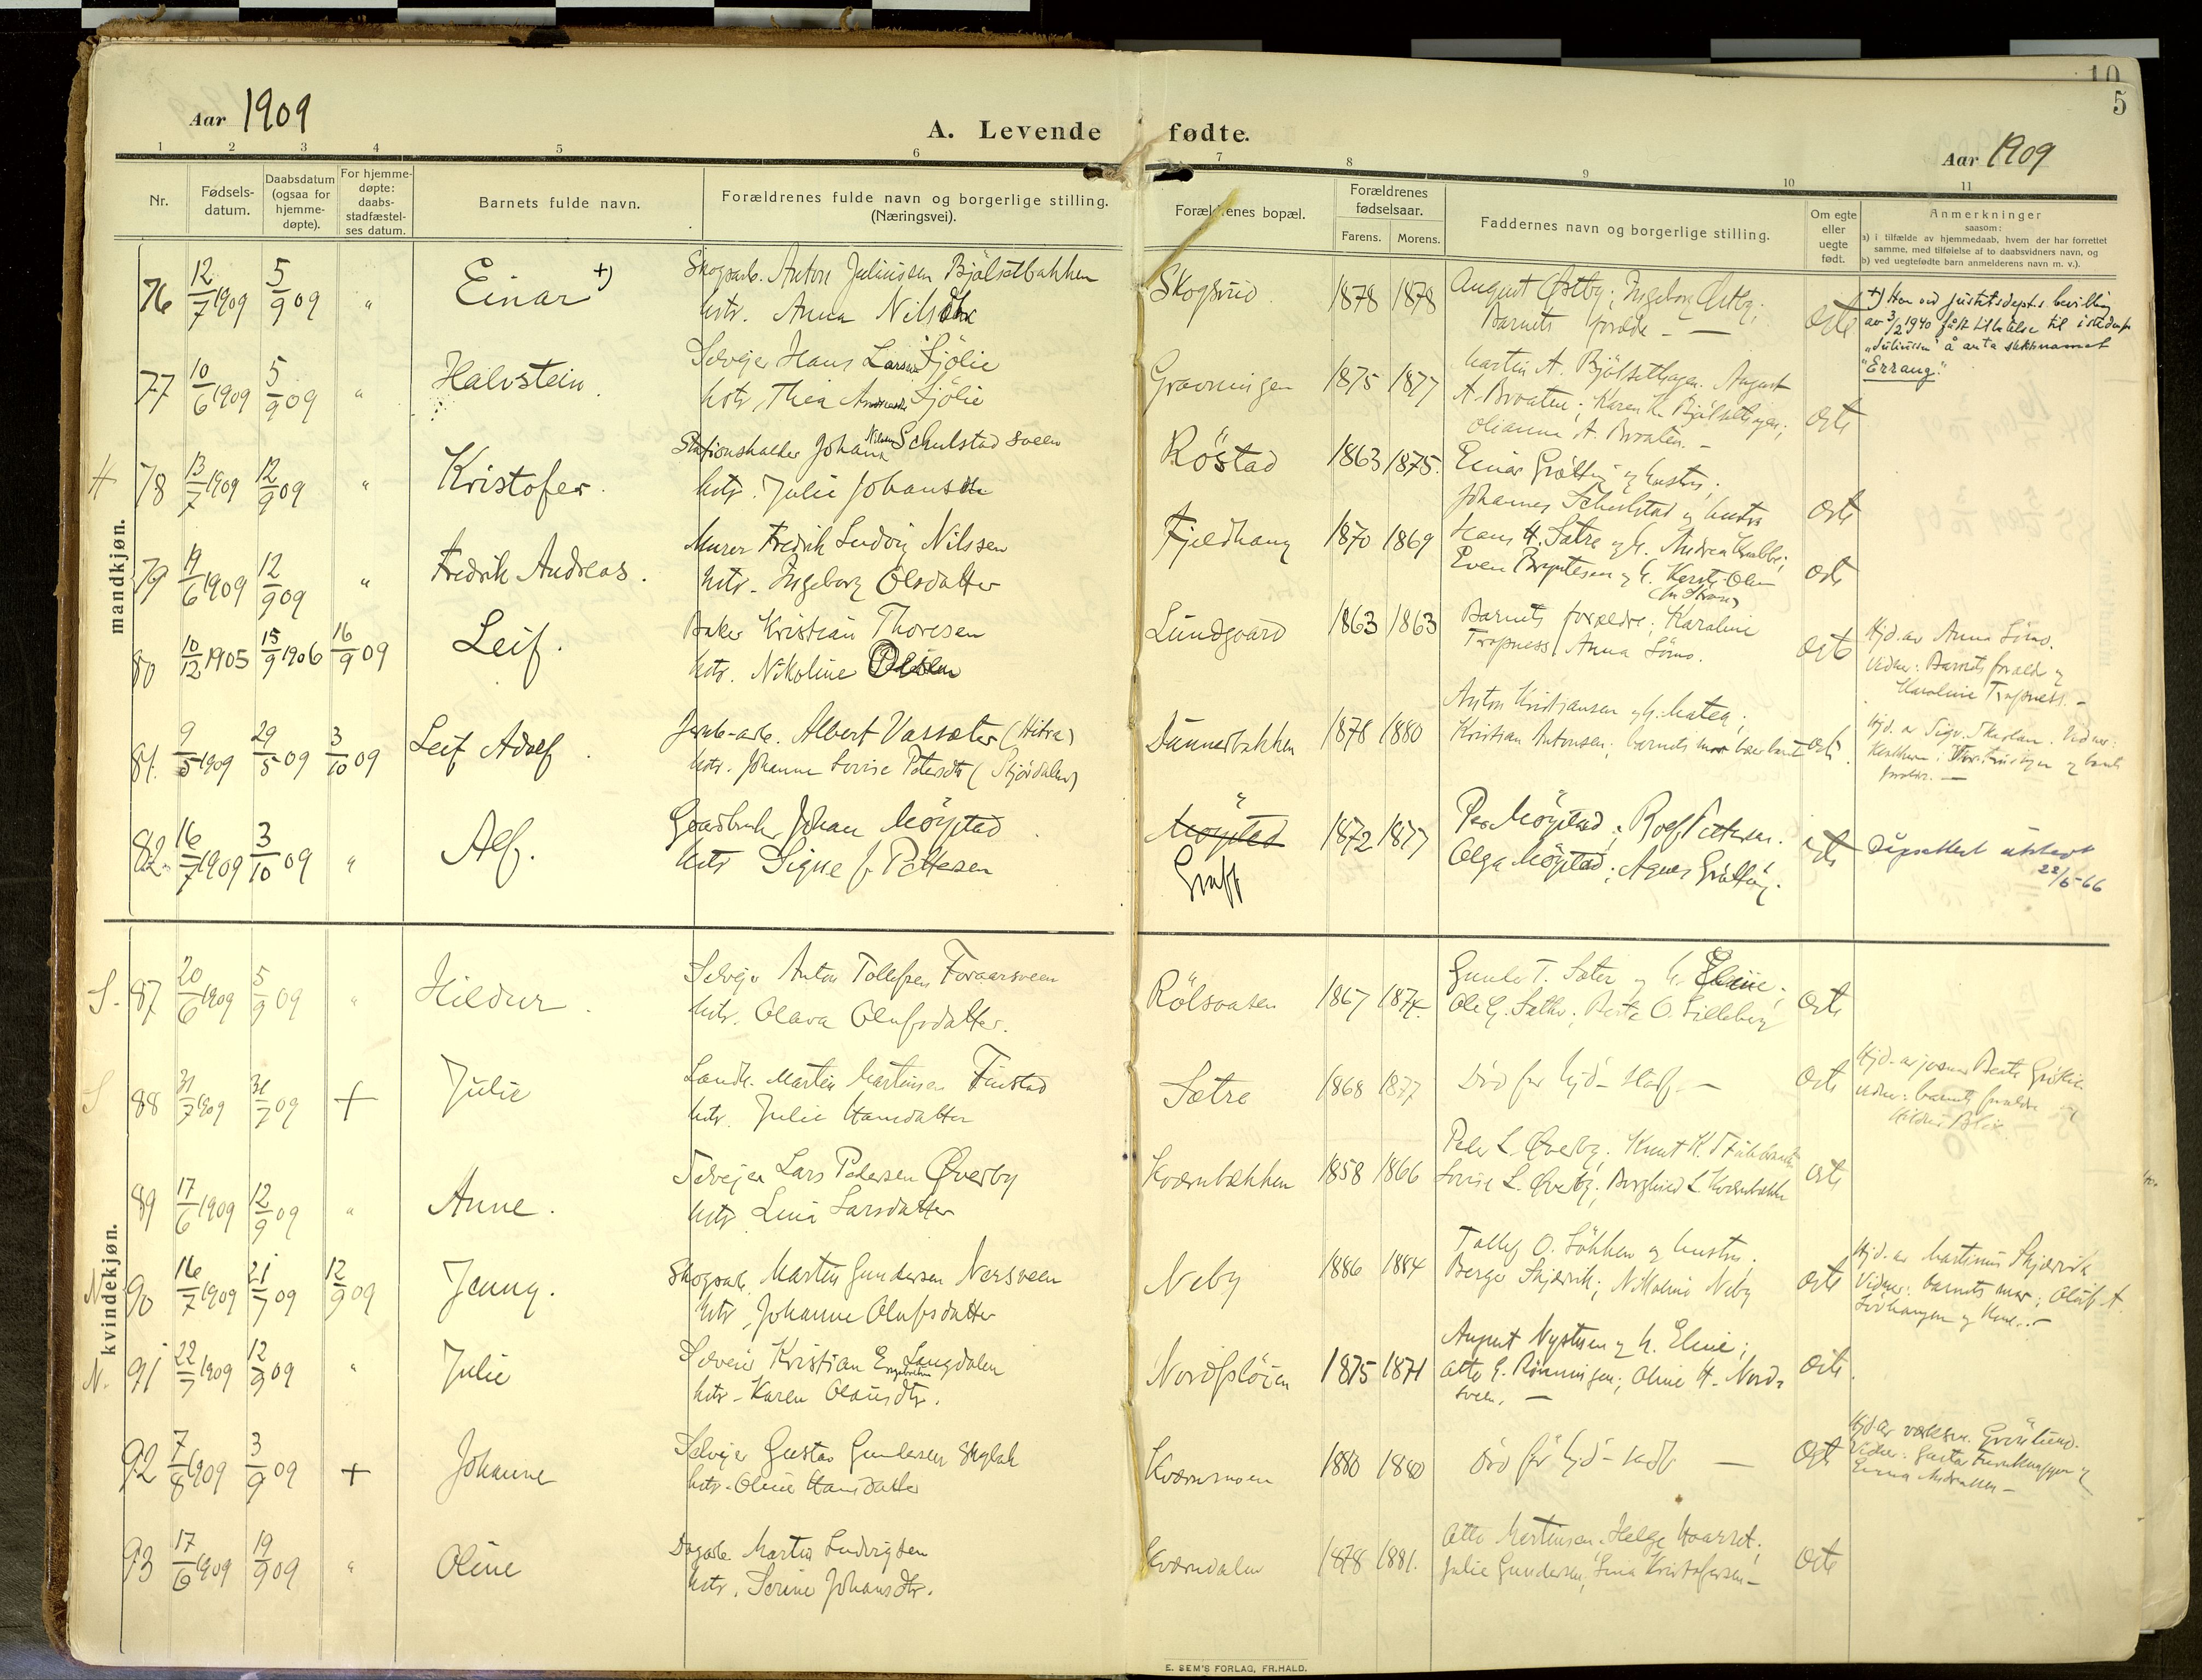 10
5
Aar 1909
A. Levende fødte.
Aar 1909
1 2 3 4 5 6 7 8 9 10 11
Nr.
Fødsels-
datum.
Daabsdatum
(ogsaa for
hjemme-
døpte).
For hjemme-
døpte:
daabs-
stadfæstel-
ses datum.
Barnets fulde navn.
Forældrenes fulde navn og borgerlige stilling.
(Næringsvei).
Forældrenes bopæl.
Forældrenes
fødselsaar.
Farens. Morens.
Faddernes navn og borgerlige stilling.
Om egte
eller
uegte
født.
Anmerkninger
saasom:
a) i tilfælde av hjemmedaab, hvem der har forrettet
samme, med tilføielse af to daabsvidners navn, og
b) ved uegtefødte barn anmelderens navn m. v.).
mandkjøn.
76 12/7 1909 5/9 09 " Einar +) Skogsarb. Anton Juliussen Bjölsetbakken
hstr. Anna Nilsdtr
Skogsrud 1878 1878 August Østby; Ingeborg Østby;
Barnets forældre — egte
+) Har ved justitsdepts bevilling
av 3/2 1940 fått tillatelse til istedenfor
"Juliussen" å anta slektsnavnet
"Errang."
77 10/6 1909 5/9 09 " Halvstein Selveier Hans Larsen Sjölie
hstr. Thea Sjölie
Gravningen 1875 1877 Martin A. Bjölsethagen. August
A. Braaten; Karen K. Bjölsethagen;
Olianna A. Braaten. — egte
H 78 13/7 1909 12/9 09 " Kristofer. Stationsholder Johan Nilsen Schulstad sveen
hstr. Julie Johansdtr
Röstad 1863 1875. Einar Gröttting og hustru;
Johannes Schulstad og hustru egte
79 19/6 1909 12/9 09 " Fredrik Andreas. Murer Fredrik Ludvig Nilssen
hstr. Ingeborg Olsdatter
Fjeldhaug 1870 1869 Hans H. Sætre og h. Andrea
Even Bryntesen og h. egte
80 10/12 1905 15/9 1906 16/9 09 Leif. Baker Kristian Thoresen
hstr. Nikoline
Lundgaard 1863 1863 Barnets forældre; Karoline
Tropness; Anna egte
Hjd. av Anna
Vidner: Barnets forældre og
Karoline Tropness. —
81. 9/5 1909 29/5 09 3/10 09 Leif Adolf. Albert Vassæter (Hitra)
hstr. Johanne Lovise Petersdtr (Stjördalen)
Dunnerbakken 1878 1880 Anton Kristiansen og h. Matea;
Kristian Antonsen; barnets mor egte
Hjd. av Sigv. Vidner:
82. 16/7 1909 3/10 09 " Alf. Gaardbruker Johan Möystad
hstr Signe f. Pettersen
Möystad
1872 1877 Per Möystad; Rolf Pettersen.
Olga Möystad; Agnes Grötting. egte
Dåpsattest utstedt
22/6-66
kvindekjøn.
S. 87 20/6 1909 5/9 09 " Hildur. Selveier Anton Tollefsen Foraarsveen
hstr. Olava Olufsdatter.
Rölsvaasen 1867 1874. Gunder T. Sæter og h. Eline;
Ole G. Sæther; Berte O. Lilleberg egte
S 88 31/7 1909 31/7 09 + Julie Landh. Martin Martinsen Finstad
hstr. Julie Hansdatter
Sætre 1868 1877 Död för hjd-stadf. — egte
Hjd. av jordm. Beate
vidner: barnets forældre og
Hilda Blix.
89 17/6 1909 12/9 09 " Anne. Selveier Lars Pedersen Øverby
hstr. Lina Larsdatter
Kværnbækken 1858 1866 Peder L. Øverby; Knut K.
Lovise L. Øverby; Borghild L. Kværnbækken egte
N. 90 16/7 1909 21/7 09 12/9 09 Jenny. Skogsarb. Martin Gundersen Nersveen
hstr. Johanne Olufsdatter
Neby 1886 1884 Tollef O. Lökken og hustru;
Berger Skjærvik; Nikoline Neby egte
Hjd. av Martinus Skjærvik
Vidner: barnets mor; Oluf A.
N. 91 22/7 1909 12/9 09 " Julie Selveier Kristian Engebretsen Langdalen
hstr. Karen Olausdtr.
Nordfslöien 1875 1871 August Nystuen og h. Eline;
Otto E. Rönningen; Oline H. Nord-
sveen. — egte.
92 7/8 1909 3/9 09 + Johanne Selveier Gustav Gundersen
hstr. Oline Hansdatter
Kværnmoen 1880 1880 Död för hjd-stadf — egte
Hjd av Grönlund.
Vidner: Gustav og
Emma
93 17/6 1909 19/9 09 " Oline Dagarb. Martin Ludvigsen
hstr. Serine Johansdtr.
Kværndalen 1878 1881. Otto Mortensen; Helge Haarset;
Julie Gundersen; Lina Kristofersen — egte
E. SEM'S FORLAG, FR.HALD.